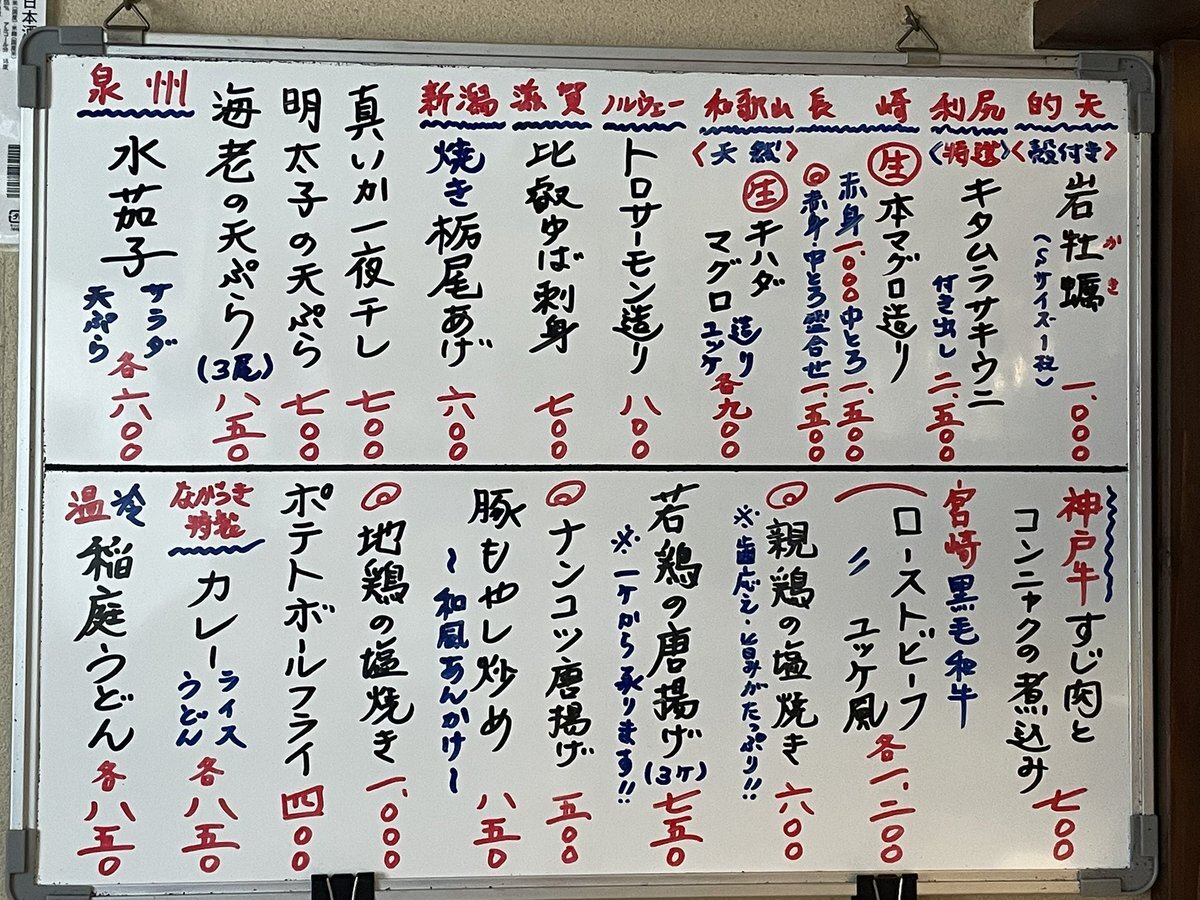 的矢
〈殻付き〉
岩牡蠣
かき
(Sサイズ1枚)
一、000
利尻
〈特選〉
キタムラサキウニ
付き出し 二、五00
長崎
生 本マグロ造り
赤身 一、000 中とろ 一、五00
赤身 中とろ盛合せ 一、五00
和歌山
〈天然〉
生 キハダ
マグロ
造り
ユッケ
各九00
ノルウェー
トロサーモン造り 八00
滋賀
比叡ゆば刺身 七00
新潟
焼き栃尾あげ 六00
真いか一夜干し 七00
明太子の天ぷら 七00
海老の天ぷら(3尾) 八五0
泉州
水茄子
サラダ
天ぷら
各六00
神戸牛すじ肉と
コンニャクの煮込み 七00
宮崎黒毛和牛
ローストビーフ
〃 ユッケ風
各一、二00
親鶏の塩焼き 六00
※歯応え・旨みがたっぷり!!
若鶏の唐揚げ(3ケ) 七五0
※一ケから承ります!!
ナンコツ唐揚げ 五00
豚もやし炒め 八五0
〜和風あんかけ〜
地鶏の塩焼き 一、000
ポテトボールフライ 四00
ながらき
特製
カレー
ライス
うどん
各八五0
冷
温
稲庭うどん 各八五0
日本酒